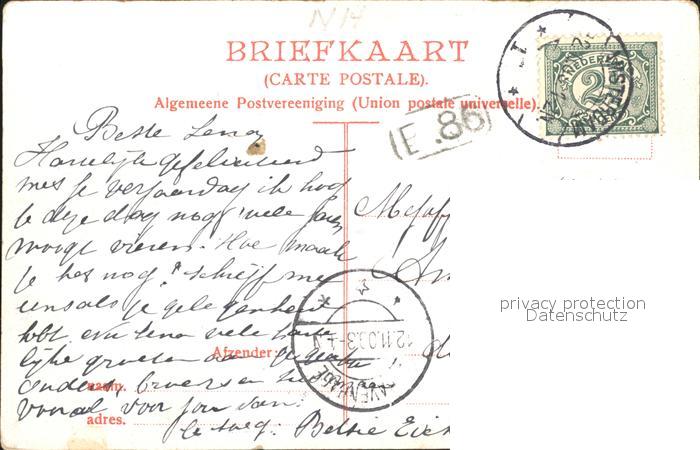 NH
BRIEFKAART
(CARTE POSTALE).
Algemeene Postvereeniging (Union postale universelle).
NEDERLAND
2½
AMSTERDAM
(E.86)
Beste Lena,
Hartelijk gefeliciteerd
met je verjaardag ik hoop
je deze dag nog vele jaren
moogt vieren. Hoe maakt
je het nog? schrijf me
eens als je gelegenheid
hebt en nu Lena vele harte
lijke groeten
ouders, broers en
vooral voor jou van:
Betsie
Afzender:
naam.
adres.
12.11.0
privacy protection
Datenschutz